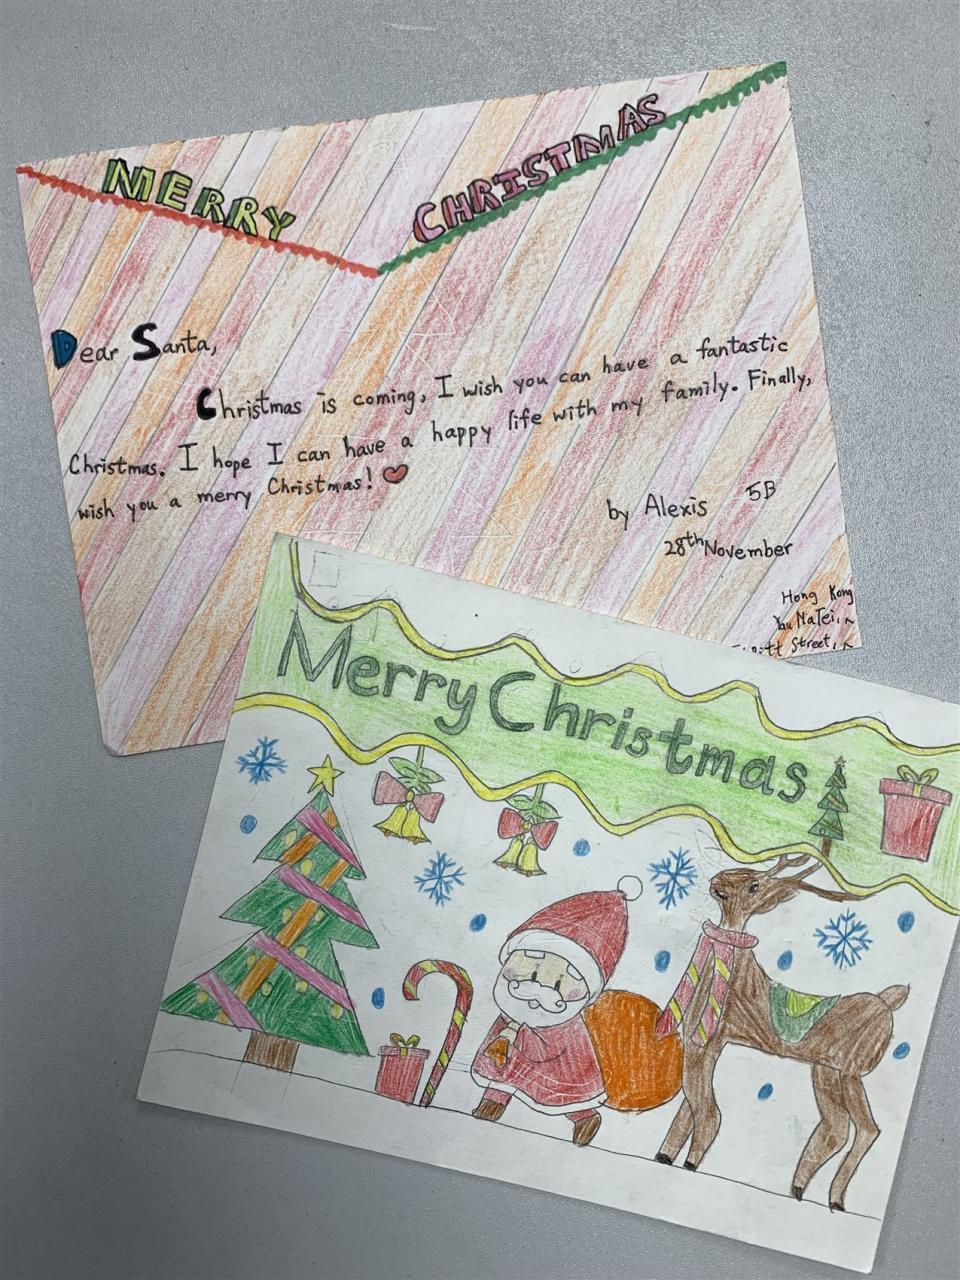 MERRY CHRISTMAS
Dear Santa,
Christmas is coming, I wish you can have a fantastic
Christmas. I hope I can have a happy life with my family. Finally,
wish you a merry Christmas!
by Alexis 5B
28th November
Hong Kong
Yau Ma Tei,
Street,
Merry Christmas